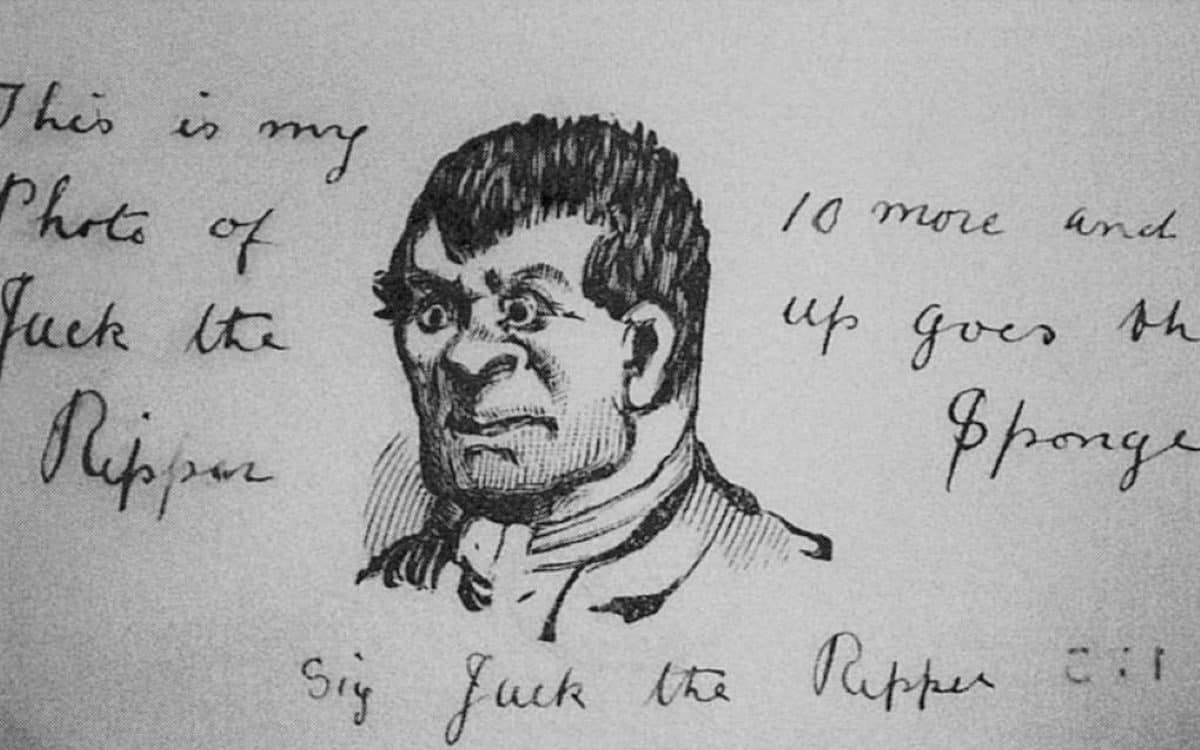 This is my
Photo of
Jack the
Ripper
10 more and
up goes th
Sponge
Sig Jack the Ripper